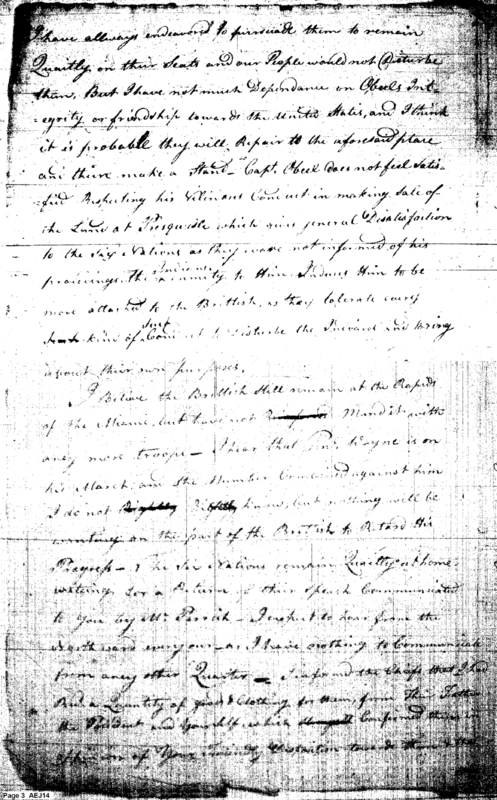 I have allways endeavord to pursuade them to remain
Quaitly on their Seats and our People would not Disturbe
them, But I have not much Dependance on Obeels Int-
-egrity or friendship towards the United States, and I think
it is probable they will Repair to the aforesaid place
and there make a Stand - Capt. Obeel does not feel Satis-
-fied Respecting his Conduct in making Sale of
the Land at Presquisle which gives general Disatisfaction
to the Six Nations as they ware not informed of his
proceedings, the Indians to Him Induces Him to be
more attached to the Brittish, as they tolerate every
kind of Conduct to Disturbe the and bring
about their own purposes.
I Believe the Brittish Still remain at the Rapids
of the Miamie, but have not with
aney more troops - I hear that Genl Wayne is on
his March, and the Number Combined against him
I do not know, but nothing will be
wanting on the part of the Brittish to Retard His
Progress - The Six Nations remain Quaitly at home
waiting for a Return of their Speach Communicated
to You by Mr. Parrish - I expect to hear from the
as I have nothing to Communicate
from aney other Quarter - I informed the Chiefs that I had
a Quantity of goods & Clothing for them, from
the President and Yourself, which Confirmed them in
oppinion of Your Friendly towards them
Page 3 AEJ14